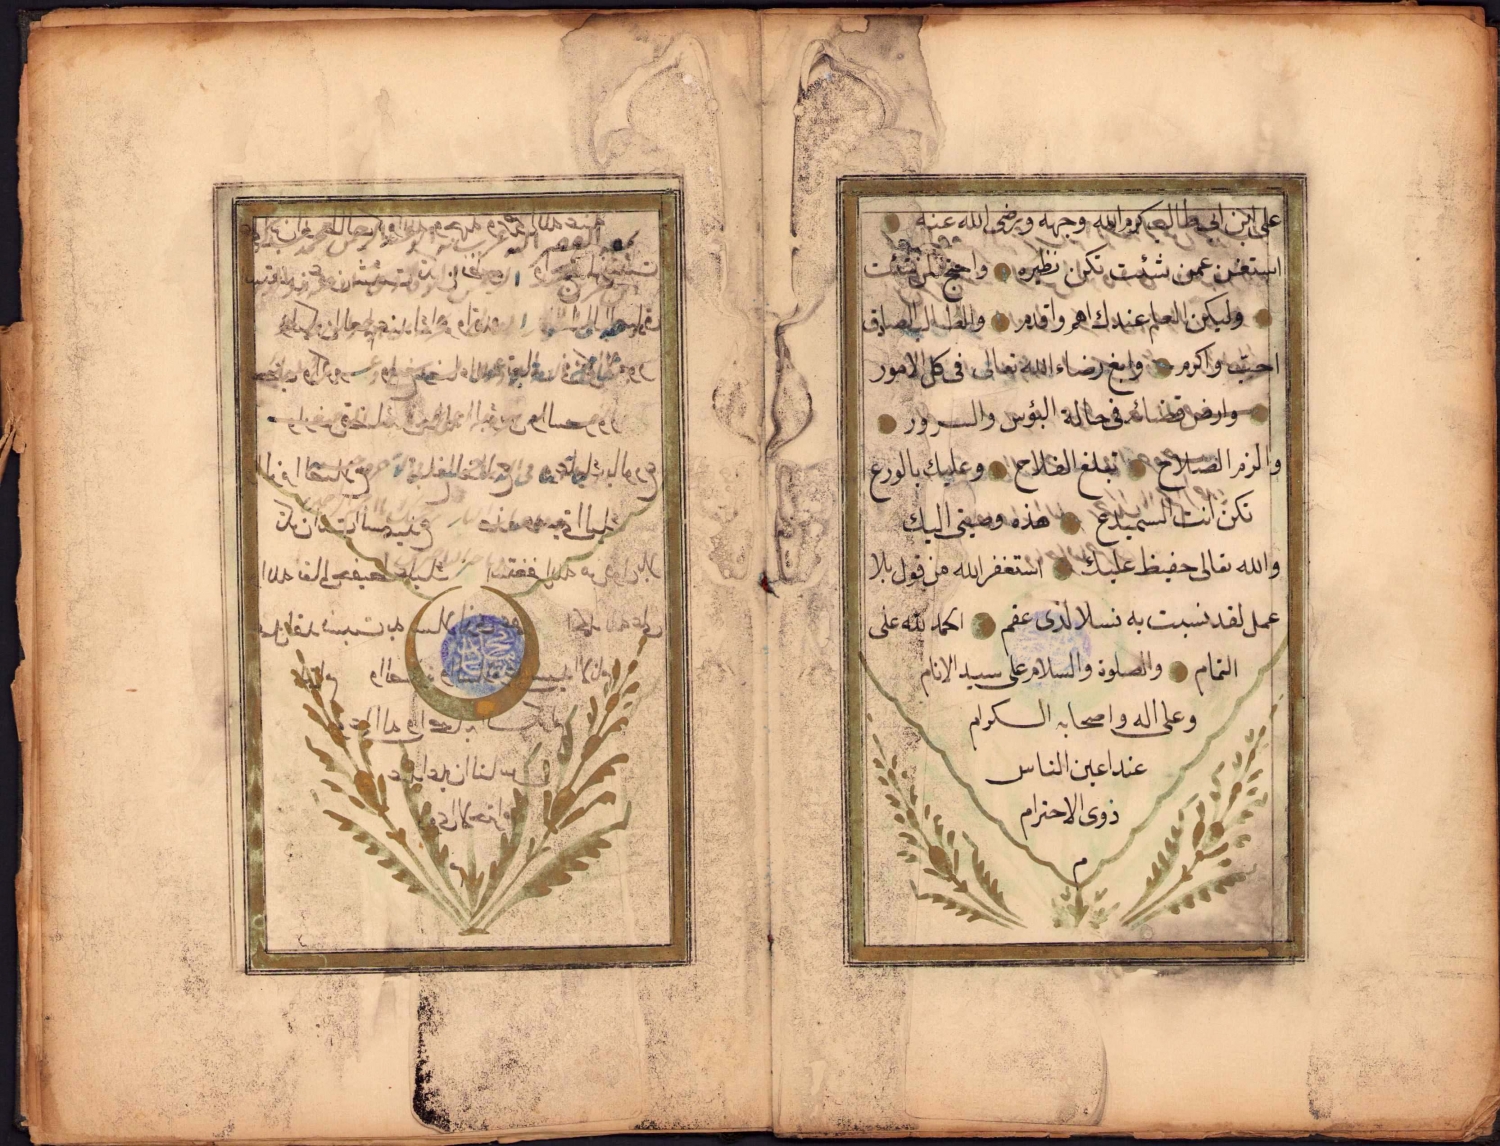 على ابن ابي طالب كرم الله وجهه ورضى الله عنه
استغن عمن شئت تكن نظيره واحتج لمن شئت
وليكن العلم عندك اهم واقدم والطالب الصادق
احب واكرم وابغ رضاء الله تعالى فى كل الامور
وارض قضائه فى حالة البؤس والسرور
والزم الصلاح تبلغ الفلاح وعليك بالورع
تكن انت السميدع هذه وصيتى اليك
والله تعالى حفيظ عليك استغفر الله من قول بلا
عمل لقد نسبت به نسلا لذى عقم الحمد لله على
التمام والصلوة والسلام على سيد الانام
وعلى اله واصحابه الكرام
عند اعين الناس
ذوى الاحترام
م